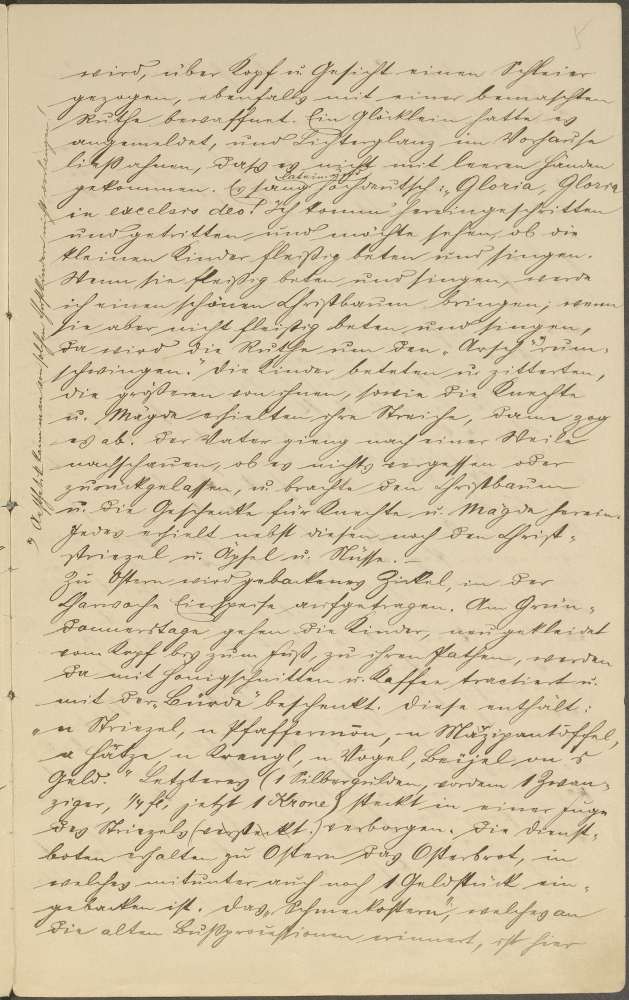 5
wird, über Kopf u. Gesicht einen Schleier
gezogen, ebenfalls mit einer bemaschten
Ruthe bewaffnet. Ein Glöcklein hatte es
angemeldet, und Lichterglanz im Vorhause
ließ ahnen, dass es nicht mit leeren Händen
gekommen. Es sang hochdeutsch: „Gloria, Gloria
in excelsis deo! Ich komm' hereingeschritten
und getritten und möchte sehen, ob die
kleinen Kinder fleißig beten und singen.
Wenn sie fleißig beten und singen, werde
ich einen schönen Christbaum bringen; wenn
sie aber nicht fleißig beten und singen,
da wird die Ruthe um den „Arsch" 'rum-
schwingen." Die Kinder beteten u. zitterten,
die größeren von ihnen, sowie die Knechte
u. Mägde erhielten ihre Streiche, dann zog
es ab. Der Vater gieng nach einer Weile
nachschauen, ob es nichts vergessen oder
zurückgelassen, u. brachte den Christbaum
u. die Geschenke für Knechte u. Mägde herein.
Jedes erhielt nebst diesen noch den Christ-
striezel u. Äpfel u. Nüsse. –
Zu Ostern wird gebackenes Zickel, in der
Charwoche Eierspeise aufgetragen. Am Grün-
donnerstage gehen die Kinder, neu gekleidet
vom Kopf bis zum Fuß, zu ihren Pathen, werden
da mit Honigschnitten u. Kaffee tractiert u.
mit der „Bürde" beschenkt. Diese enthält:
„n Striezel, n Pfaffermon, n Mazipantoffel,
a Hätze n Krengl, n Vogel, Beijel, on s
Geld." Letzteres (1 Silbergulden, vordem 1 Zwan-
ziger, 1/4 fl, jetzt 1 Krone) steckt in einer Fuge
des Striezels (versteckt.) verborgen. Die Dienst-
boten erhalten zu Ostern das Osterbrot, in
welches mitunter auch noch 1 Geldstück ein-
gebacken ist. Das „Schmeckostern", welches an
die alten Bußprocessionen erinnert, ist hier